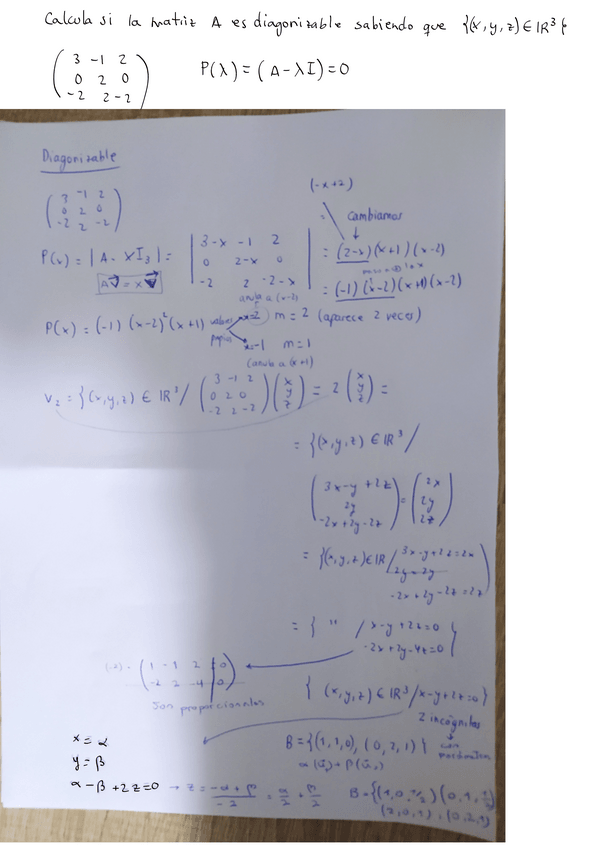 Calcula si la matriz A es diagonizable sabiendo que {(x,y,z) ∈ IR³ {
( 3 -1 2
0 2 0
-2 2 -2 )
P(λ) = (A - λI) = 0
Diagonizable
( 3 -1 2
0 2 0
-2 2 -2 )
(-x+2)
cambiamos
P(x) = |A - XI₃| = | 3-x -1 2
0 2-x 0
-2 2 -2-x | = (2-x)(x+1)(x-2)
= (-1)(x-2)(x+1)(x-2)
A v = x v
anula a (x-2)
P(x) = (-1)(x-2)²(x+1) valores propios x=2 m=2 (aparece 2 veces)
x=-1 m=1
(anula a (x+1)
V₂ = {(x,y,z) ∈ IR³ / ( 3 -1 2
0 2 0
-2 2 -2 ) ( x
y
z ) = 2 ( x
y
z ) =
= {(x,y,z) ∈ IR³ /
( 3x-y+2z
2y
-2x+2y-2z ) = ( 2x
2y
2z )
= {(x,y,z) ∈ IR / 3x-y+2z=2x
2y=2y
-2x+2y-2z=2z
= { " / x-y+2z=0
-2x+2y-4z=0 }
(-2) · ( 1 -1 2 | 0
-2 2 -4 | 0 )
Son proporcionales
{ (x,y,z) ∈ IR³ / x-y+2z=0 }
2 incógnitas
x = α
y = β
α - β + 2z = 0 → z = -α+β / -2 = α/2 + β/2
B = {(1,1,0), (0,2,1)}
B = {(1,0,1/2)(0,1,1/2)
(2,0,1), (0,2,1)